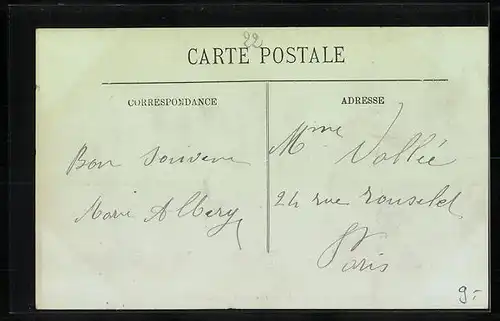 22
CARTE POSTALE
CORRESPONDANCE
Bon Souvenir
Marie Albery
ADRESSE
Mme Vallée
24 rue rousselet
Paris
9.-